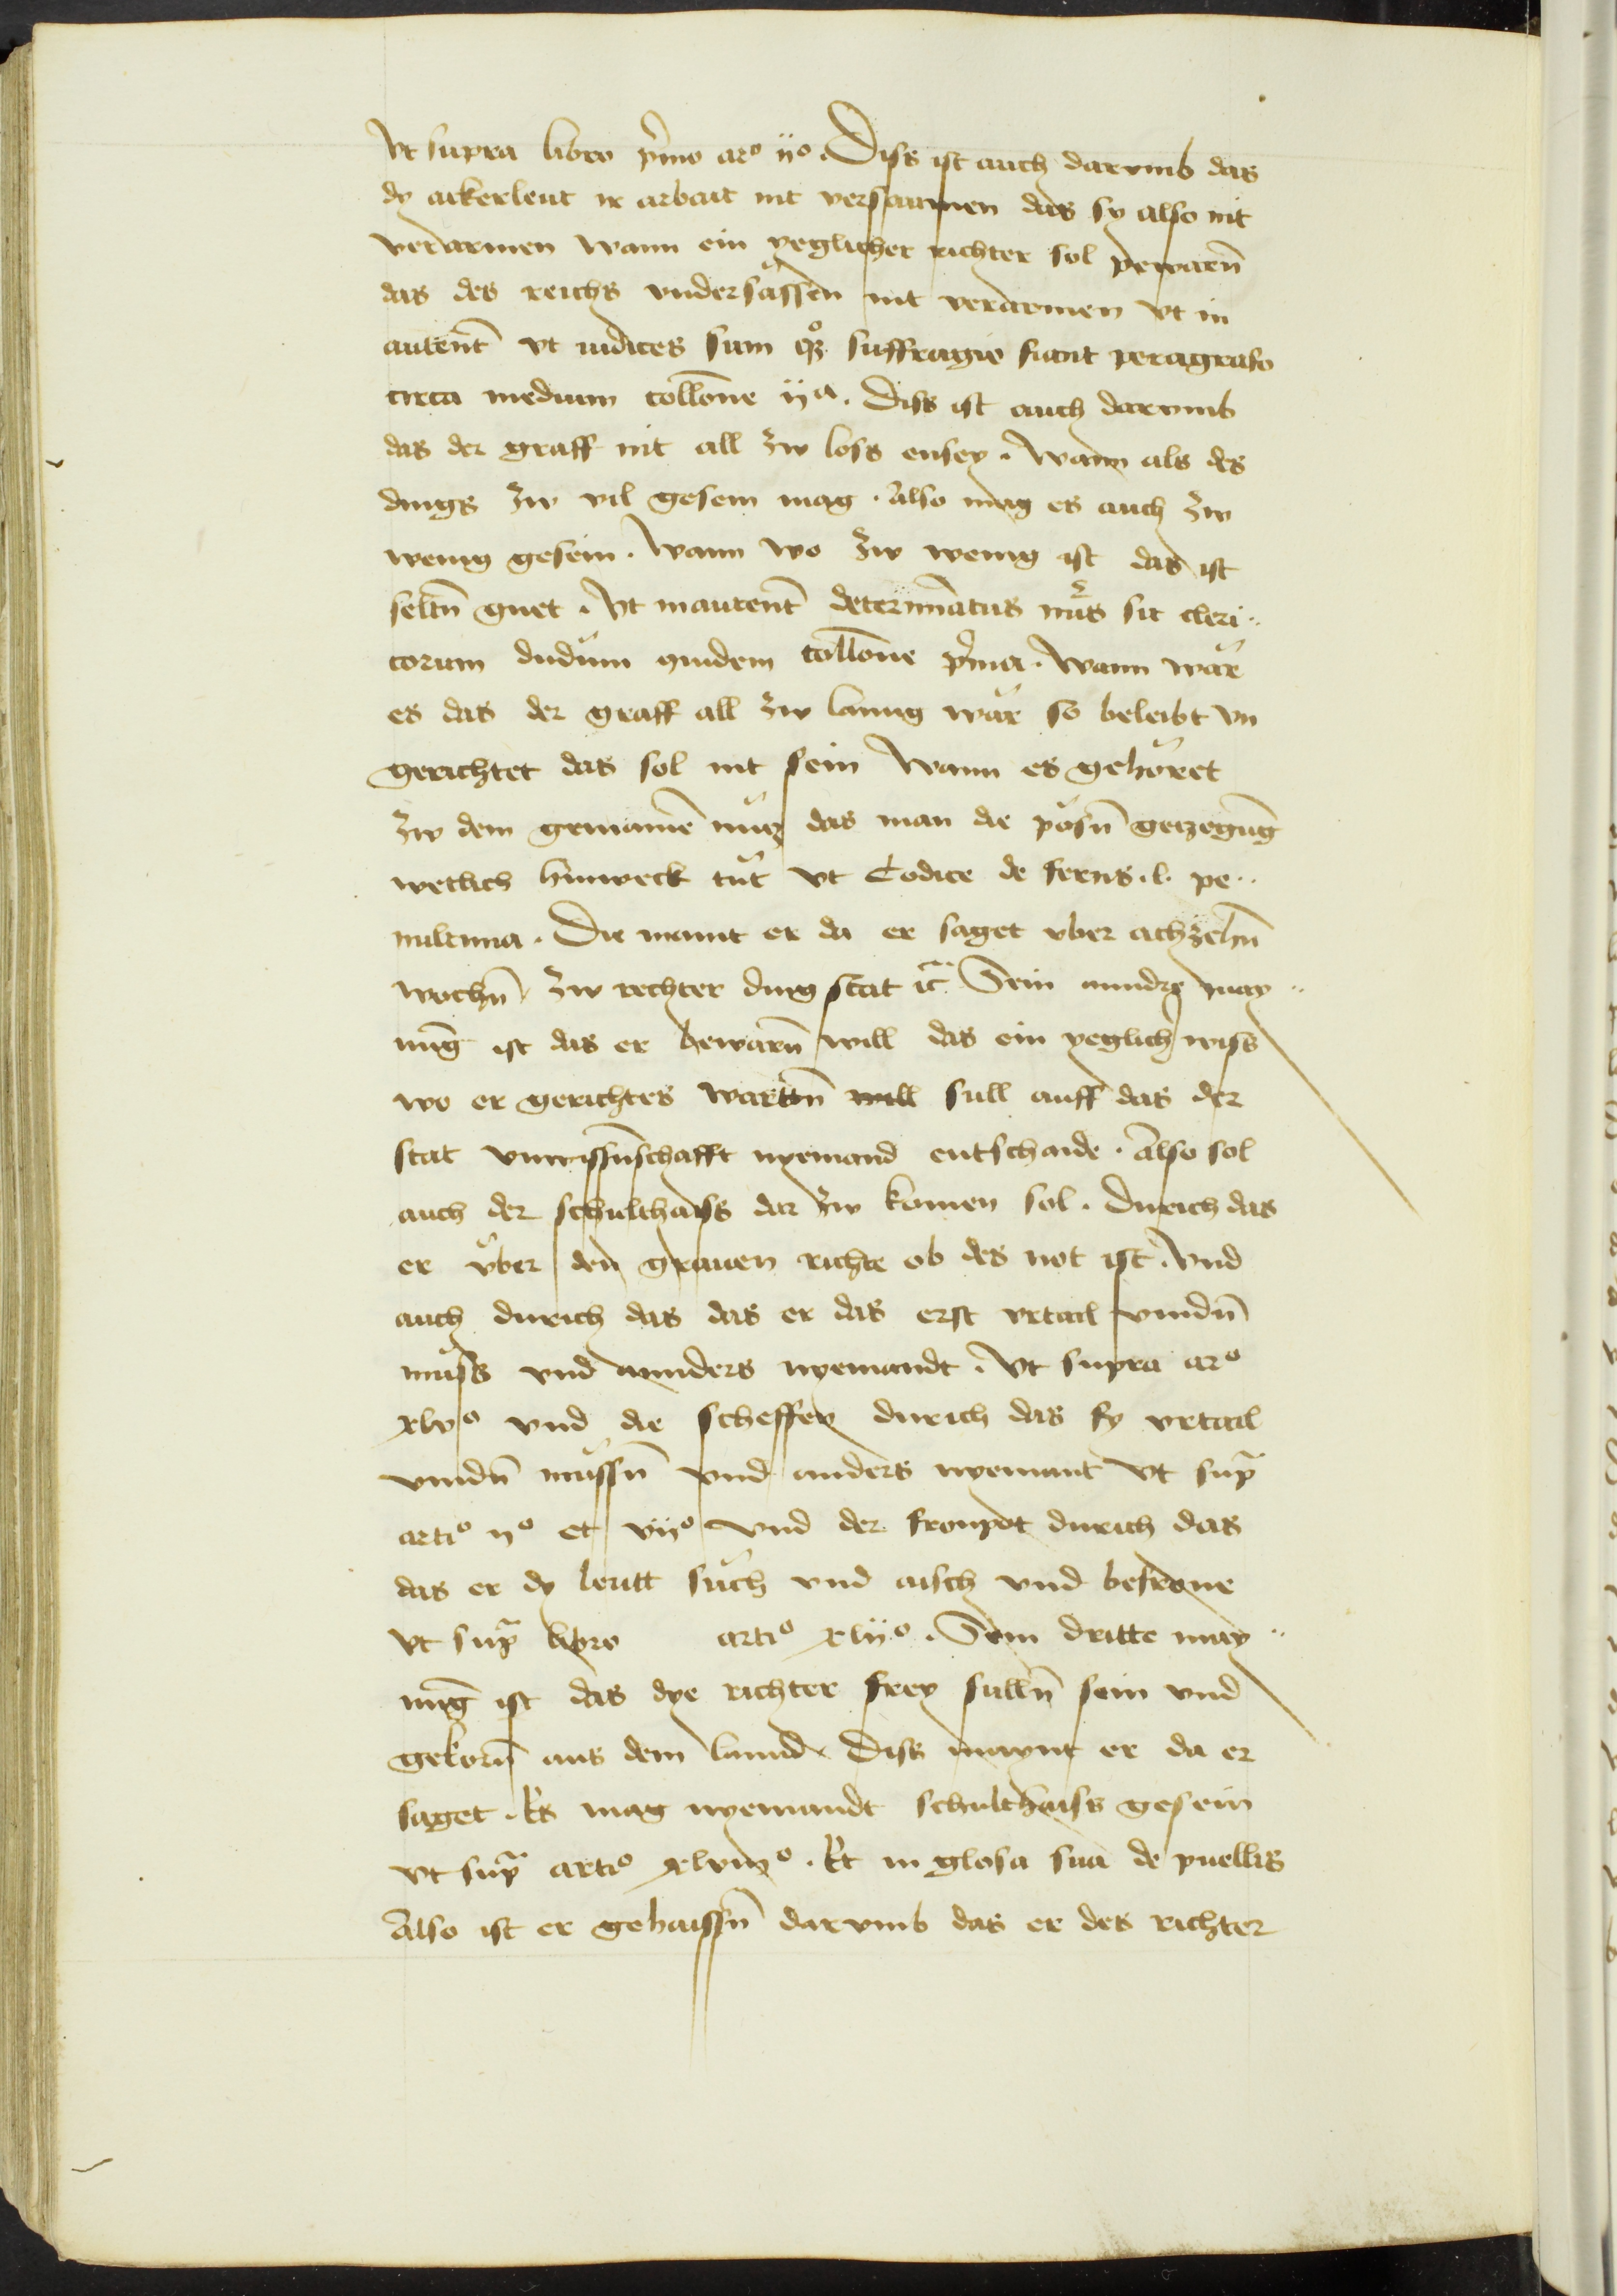 Vt supra libro p̄mo aro iio. Diss ist auch darvmb das
dy ackerleut ir arbait nit versaumen das sy also nit
verarmen wann ein yeglicher richter sol pewarn̄
das des reichs vndersässen nit verarmen vt in
autent̄ vt iudices sum qz suffragio fiant peragrafo
circa medium collon̄e iia. Diss ist auch darvmb
das der graff nit all zw loss ensey. wann als des
dings zw vil gesein mag. also mag es auch zw
wenig gesein. wann wo zw wenig ist das ist
seltn̄ guet. Vt in autent̄ determinatus nūs sit cleri
corum dudum quidem collon̄e p̄ma. wann wär
es das der graff all zw lanng wär so beleibt vn
gerichtet das sol nit sein wann es gehöret
zw dem gemainē nucz das man die pösn̄ geczegung
wetlich hinweck tūt vt Codice de feriis. l. pe
nultima. Die maint er da er saget vber achzehn̄
wochn̄ zw rechter ding stat ic̄ Sein anndre may
nūg ist das er bewarn̄ will das ein yeglich wiss
wo er gerichtes wartten̄ will sull auff das der
stat vnwissn̄schafft nyemand entschaide. Also sol
auch der schulthaiss dar zw komen sol. durich das
er vber den grauen richte ob des not ist. vnd
auch durich das das er das erst vrtail vindn̄
muss vnd annders nyemandt. Vt supra aro
xlvo vnd die scheffen durich das sy vrtail
vindn̄ mussn̄ vnd anders nyemant vt sup̄
artio iio et viio vnd der fronpot durich das
das er dy leutt such vnd aisch vnd befrone
vt sup̄ libro artio xliio. Sein dritte may
nūg ist das dye richter frey sulln̄ sein vnd
gekorn̄ aus dem lannd. Diss maynt er da er
saget. Es mag nyemandt schulthaiss gesein
vt sup̄ artio xlviiio. Et in glosa sua de puellis
Also ist er gehaissn̄ darvmb das er des richter